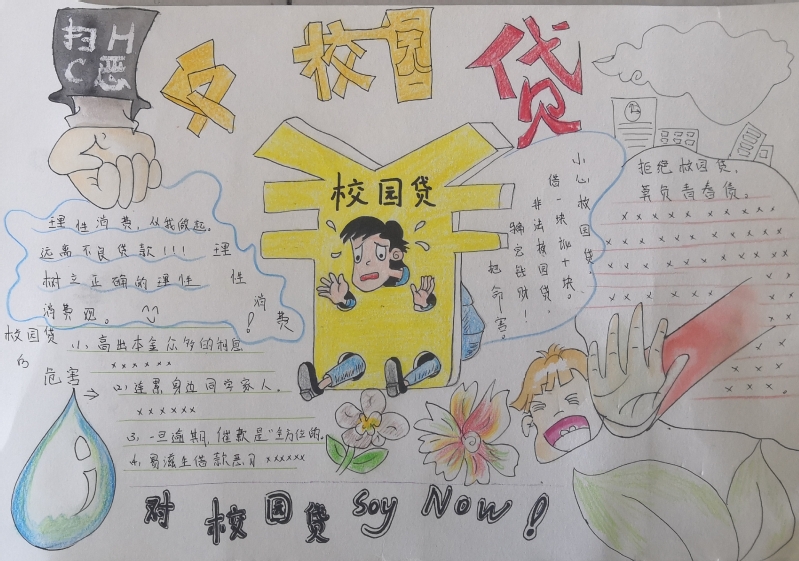 扫H
C恶
校园贷
校园贷
理性消费，从我做起。
远离不良贷款!!!
树立正确的理性
消费观。
理性消费!
小心校园贷
借一块还十块。
非法校园贷，
骗完钱财!
把命害。
拒绝校园贷，
莫负青春债。
x x x x x x x x
x x x x x x x x
校园贷
的
危害→
(1). 高出本金众多的利息
x x x x x x
(2) 连累身边同学家人。
x x x x x x
3. 一旦逾期,催款是"全方位的.
4. 易滋生借款恶习 xxxxxx
对校园贷 Soy Now!